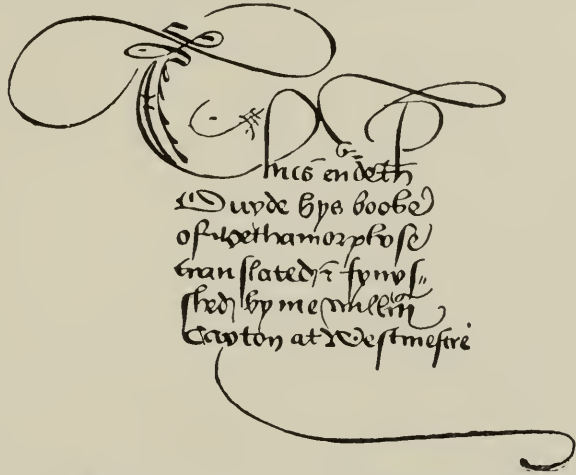 Thus endeth
Ouyde hys booke
of Methamorphose
translated & fynys=
shed by me willm̄
Caxton at Westmestre